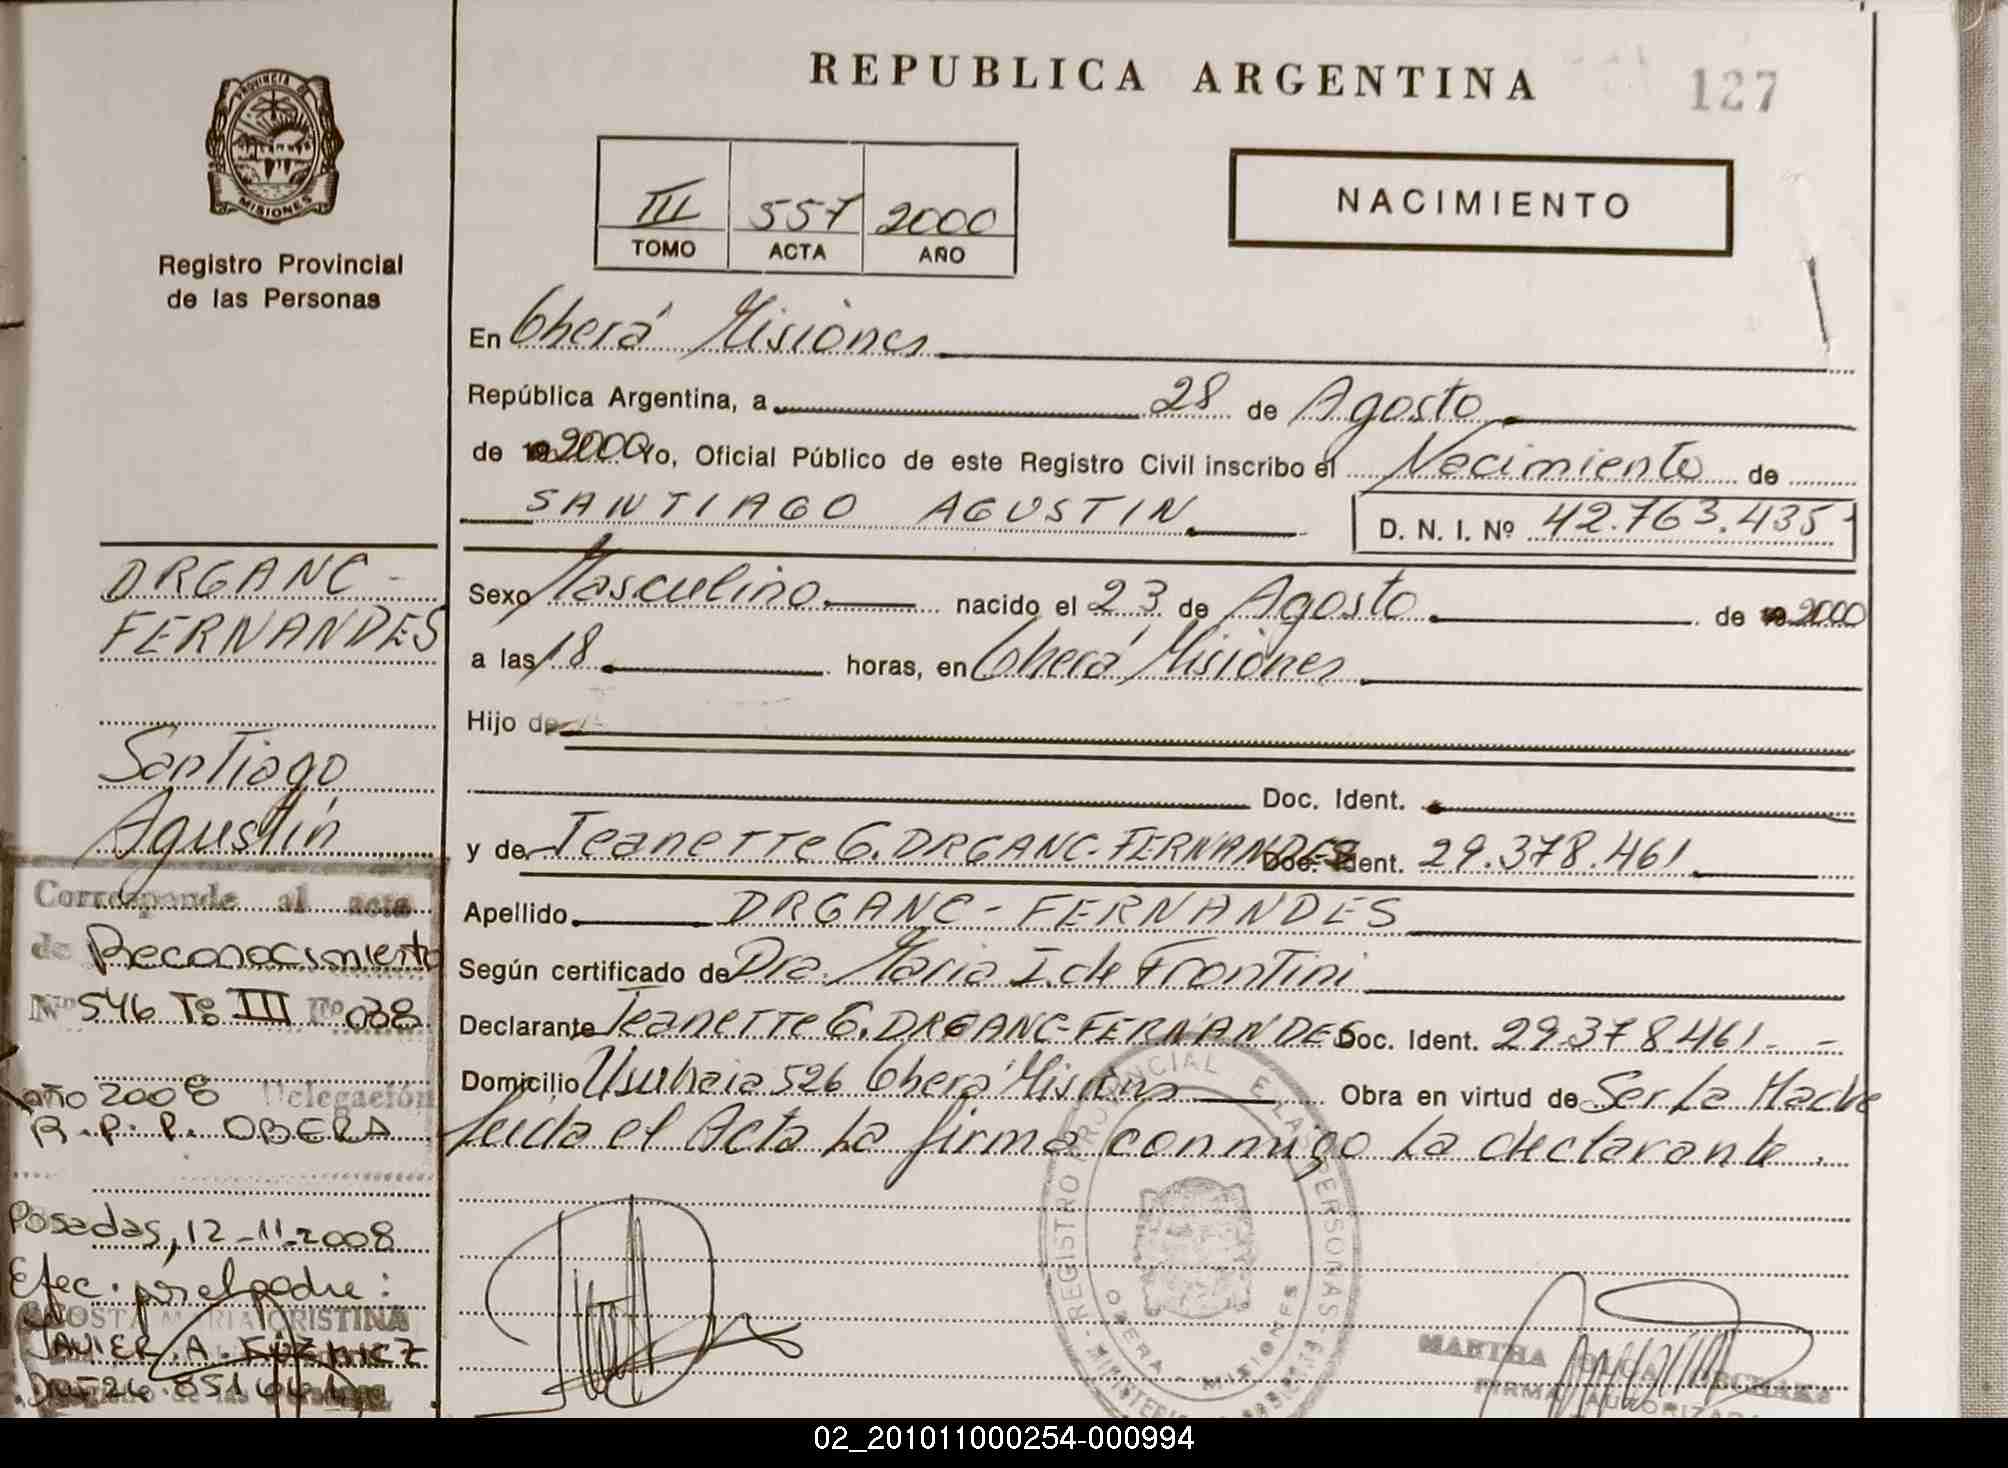 PROVINCIA DE
MISIONES
Registro Provincial
de las Personas
REPUBLICA ARGENTINA
127
III 557 2000
TOMO ACTA AÑO
NACIMIENTO
En Oberá Misiones
República Argentina, a 28 de Agosto
de 2000 Yo, Oficial Público de este Registro Civil inscribo el Nacimiento de
SANTIAGO AGUSTIN D. N. I. Nº 42.763.435
Sexo Masculino nacido el 23 de Agosto de 2000
a las 18 horas, en Oberá Misiones
Hijo de
Doc. Ident.
y de Jeanette G. DRGANC-FERNANDES Doc. Ident. 29.378.461
Apellido DRGANC-FERNANDES
Según certificado de Dra. Maria I. de Frontini
Declarante Jeanette G. DRGANC-FERNANDES Doc. Ident. 29.378.461
Domicilio Usuhaia 526 Oberá Misiones Obra en virtud de Ser La Madre
Leida el Acta La firma conmigo La declarante.
DRGANC-
FERNANDES
Santiago
Agustín
Corresponde al acta
de Reconocimiento
Nº 546 Tº III Fº 038
año 2008 Delegación
R.P.P. OBERA
Posadas, 12-11-2008
Efec. por el padre:
ACOSTA MARIA CRISTINA
JAVIER A.
REGISTRO PROVINCIAL DE LAS PERSONAS
OBERA - MISIONES
MARTHA
FIRMA AUTORIZADA
02_201011000254-000994